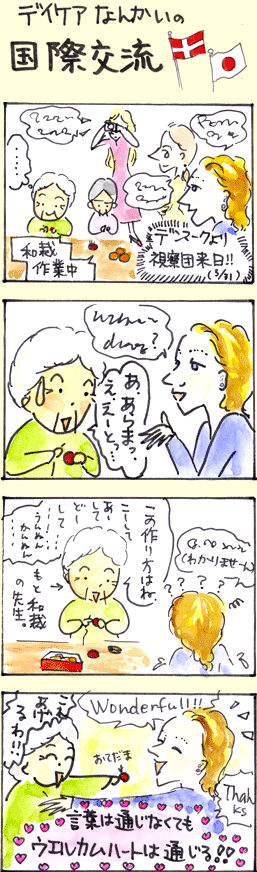 デイケアなんかいの
国際交流
・・・
和裁
作業中
デンマークより
視察団来日!!
(5/31)
?
あ、あらまっ、
ええーとっ…
この作り方はね、
こーして
あーして
どー
して
うんぬん
かんぬん
もと和裁
の先生。
(わかりませーん)
? ? ? ? ?
Wonderfull!!
これ
あげ
るわ!!
おてだま
Thanks
言葉は通じなくても
ウエルカムハートは通じる!!